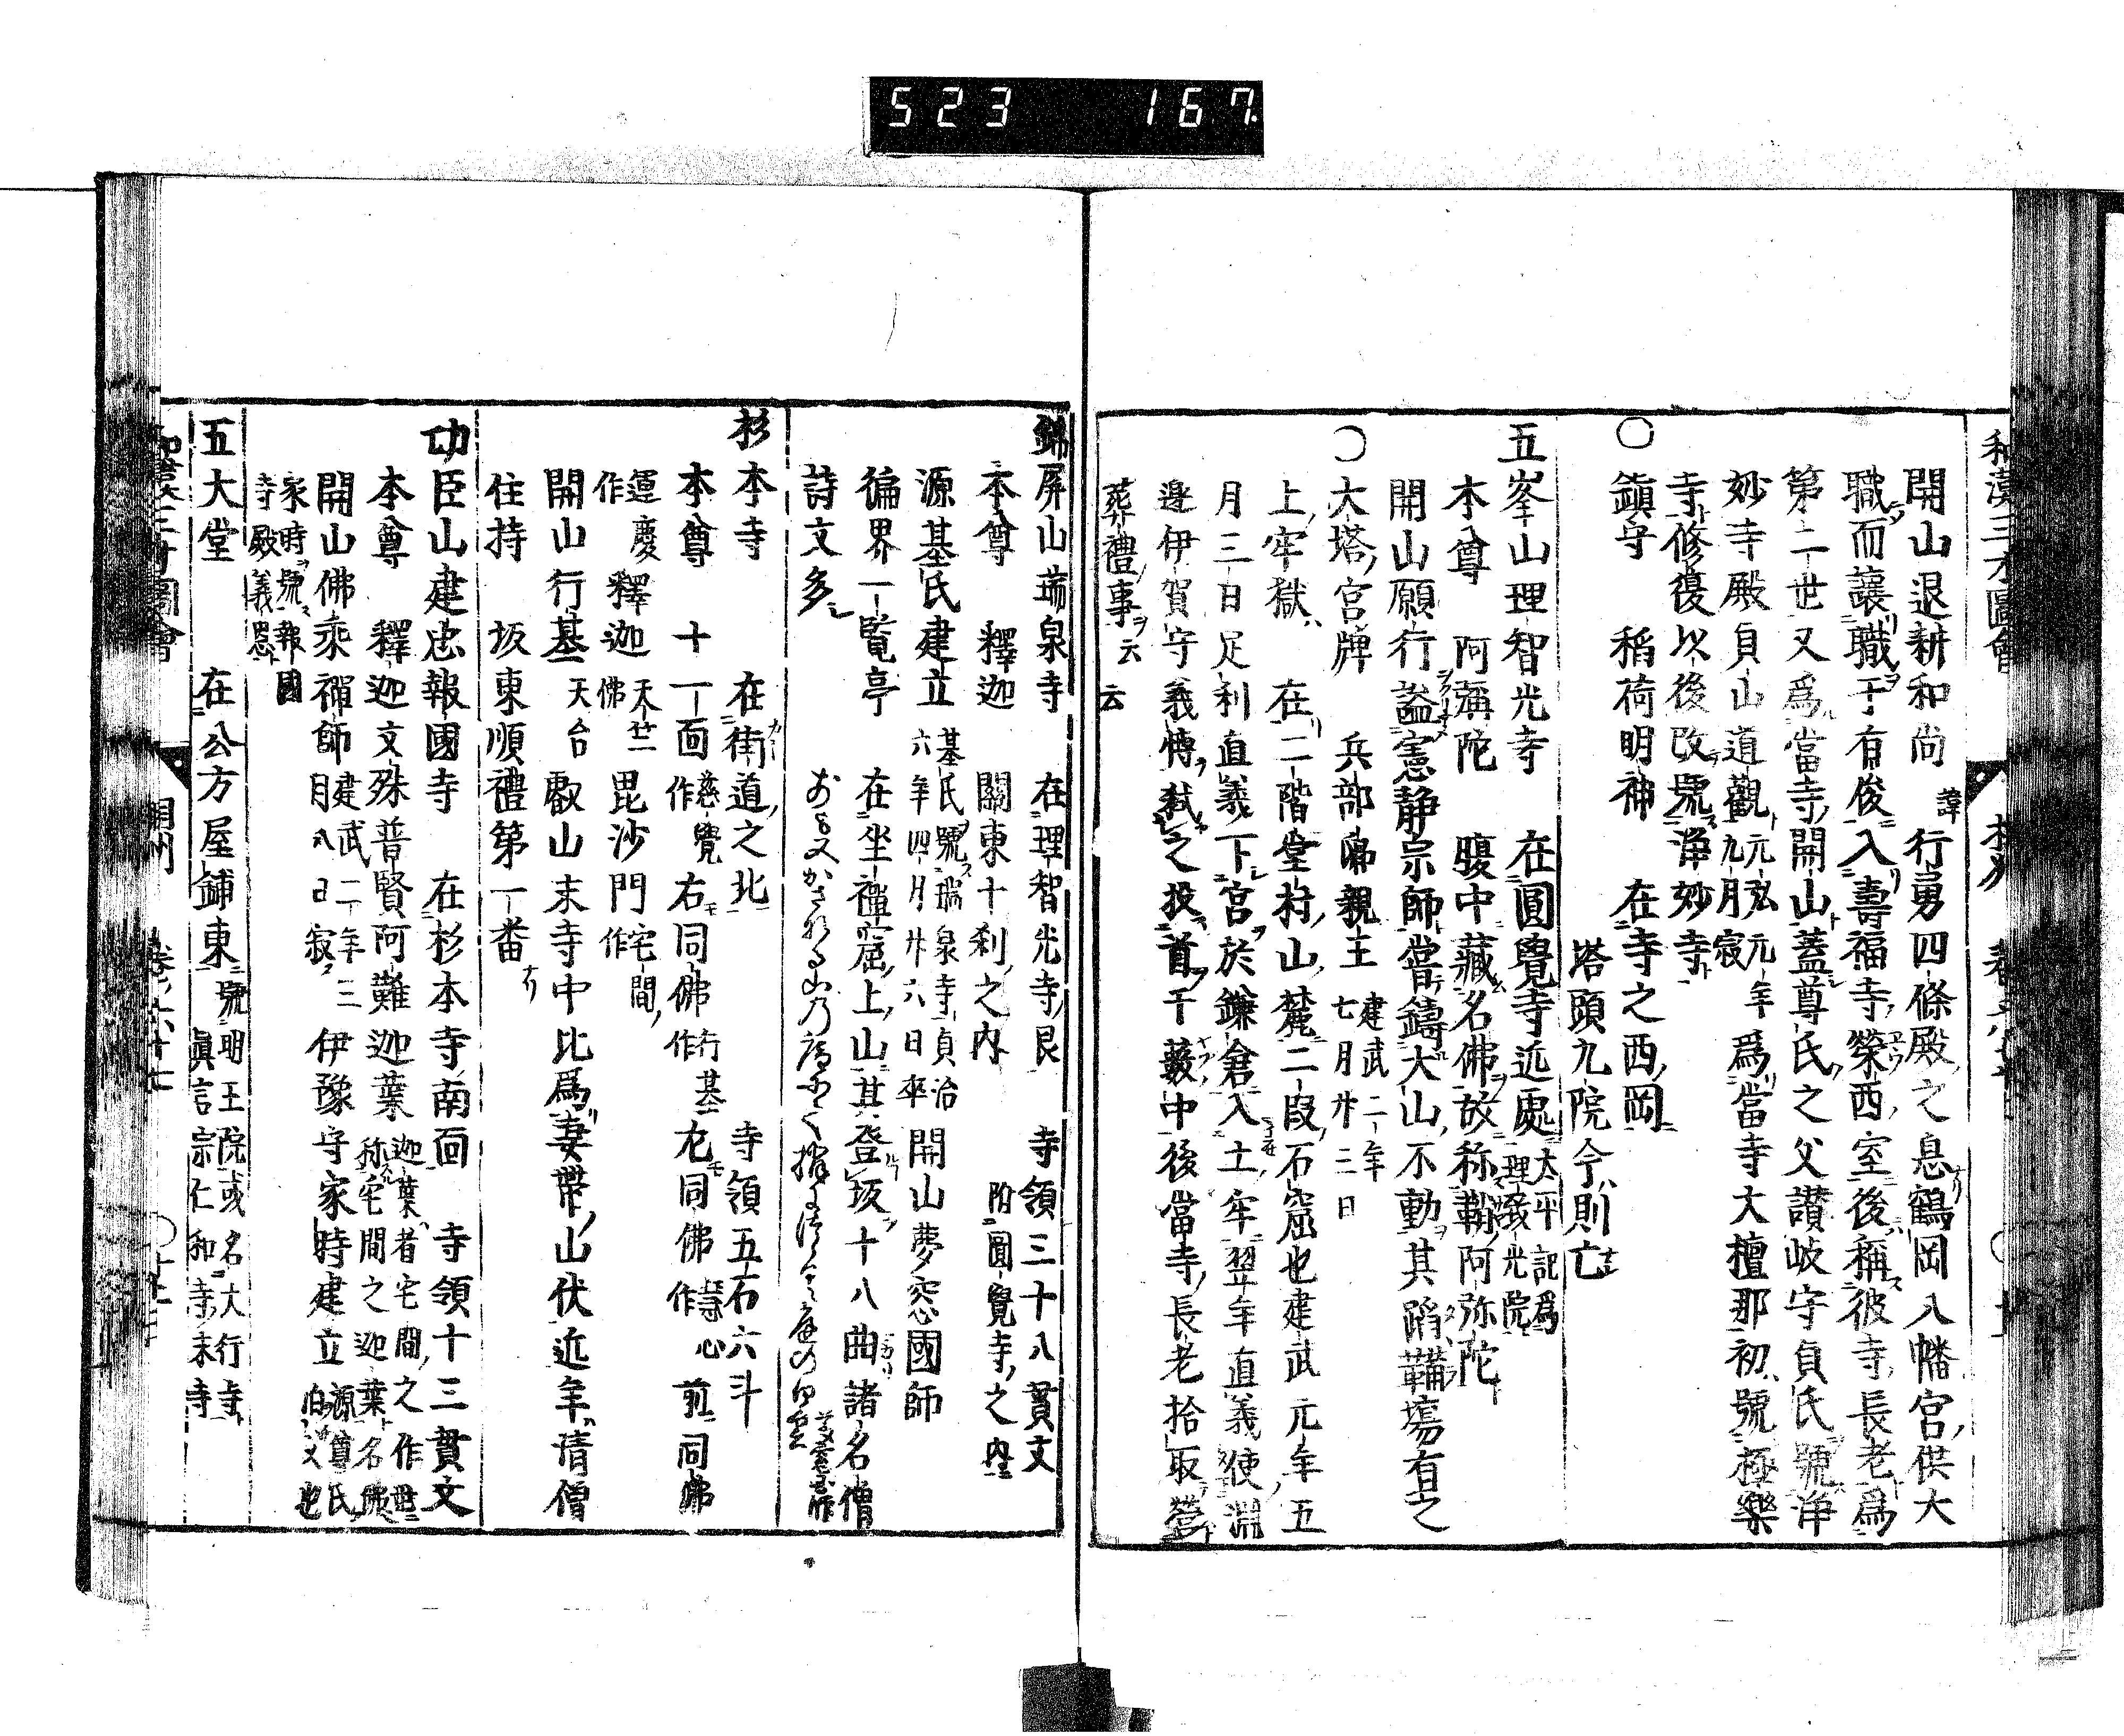 523 167
和漢三才圖會
開山退耕和尚 諱 行勇四條殿之息鶴岡八幡宮供大
職而讓職于有俊入壽福寺榮西室後稱彼寺長老爲
第二世又爲當寺開山蓋尊氏之父讃岐守貞氏號浄
妙寺殿貞山道觀 元弘元年九月寂 爲當寺大檀那初號極樂
寺修復以後改號浄妙寺
塔頭九院今則亡
〇鎮守 稻荷明神 在寺之西岡
五峯山理智光寺 在圓覺寺近處 太平記爲理致光院
本尊 阿彌陀 腹中藏名佛故称鞘阿弥陀
開山願行謚憲静宗師嘗鑄大山不動其蹈鞴塲有之
〇大塔宮牌 兵部卿親王 建武二年七月廿二日
在二階堂村山麓二段石窟也建武元年五
上牢獄
月三日足利直義下宮於鎌倉入土牢翌年直義使淵
邊伊賀守義博弑之投首于藪中後當寺長老拾取營
葬禮事云云
錦屏山瑞泉寺 在理智光寺艮 寺領三十八貫文
本尊 釋迦 關東十刹之内 附圓覺寺之内
源基氏建立 基氏號瑞泉寺貞治六年四月廿六日卒 開山夢窓國師
徧界一覧亭 在坐禪窟上山其登坂十八曲諸名僧
詩文多
杉本寺 在街道之北 寺領五石六斗
本尊 十一面 慈覺作 右同佛 行基作 左同佛 慧心作 前同佛
運慶作 釋迦 天竺佛 毘沙門 宅間作
開山行基 天台 叡山末寺中比爲妻帯山伏近年清僧
住持 坂東順禮第一番
功臣山建忠報國寺 在杉本寺南面 寺領十三貫文
本尊 釋迦文殊普賢阿難迦葉 迦葉者宅間之作世称宅間之迦葉名佛
開山佛乘禪師 建武二年三月八日寂 伊豫守家時建立 源尊氏伯父也
家時號報國寺殿義恩
五大堂 在公方屋鋪東 號明王院或名大行寺眞言宗仁和寺末寺